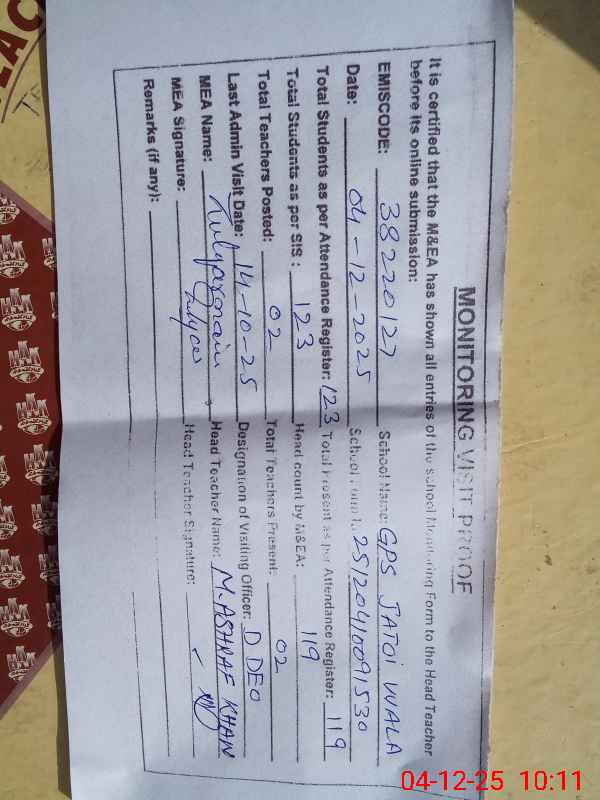 MONITORING VISIT PROOF
It is certified that the M&EA has shown all entries of the School Monitoring Form to the Head Teacher
before its online submission:
EMISCODE: 38220127 School Name: GPS JATOI WALA
Date: 04-12-2025 School 25/20410091530
Total Students as per Attendance Register: 123 Total Present as per Attendance Register: 119
Total Students as per SIS : 123 Head count by M&EA: 119
Total Teachers Posted: 02 Total Teachers Present: 02
Last Admin Visit Date: 14-10-25 Designation of Visiting Officer: D DEO
MEA Name: Head Teacher Name: M. ASHRAF KHAN
MEA Signature: Head Teacher Signature:
Remarks (if any):
04-12-25 10:11